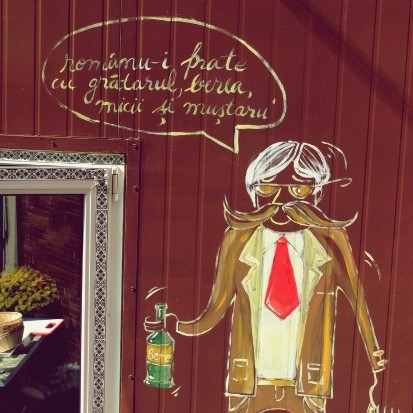 românu-i frate
cu grătarul, berea,
micii și muștaru'
BERE